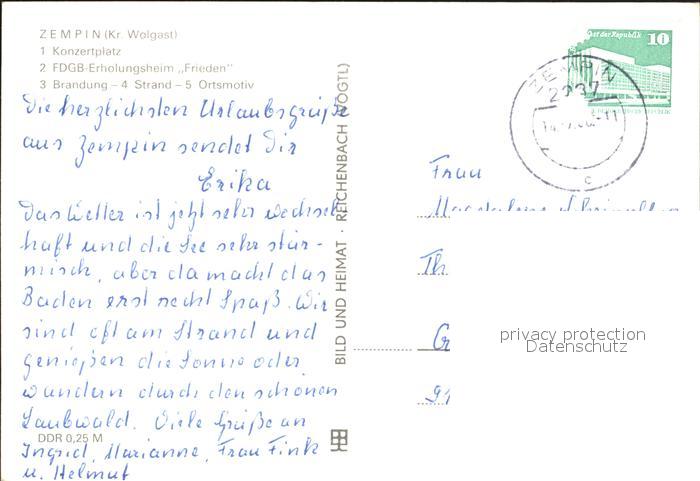 ZEMPIN (Kr. Wolgast)
1 Konzertplatz
2 FDGB-Erholungsheim „Frieden"
3 Brandung – 4 Strand – 5 Ortsmotiv
Die herzlichsten Urlaubsgrüße
aus Zempin sendet Dir
Erika
Das Wetter ist jetzt sehr wechsel-
haft und die See sehr stür-
misch, aber da macht das
Baden erst recht Spaß. Wir
sind oft am Strand und
genießen die Sonne oder
wandern durch den schönen
Laubwald. Viele Grüße an
Ingrid, Marianne, Frau Fink
u. Helmut
DDR 0,25 M
BILD UND HEIMAT · REICHENBACH (VOGTL)
Palast der Republik 10
ZEMPIN
2237
c
Frau
Magdalena
Th
Cr
privacy protection
Datenschutz